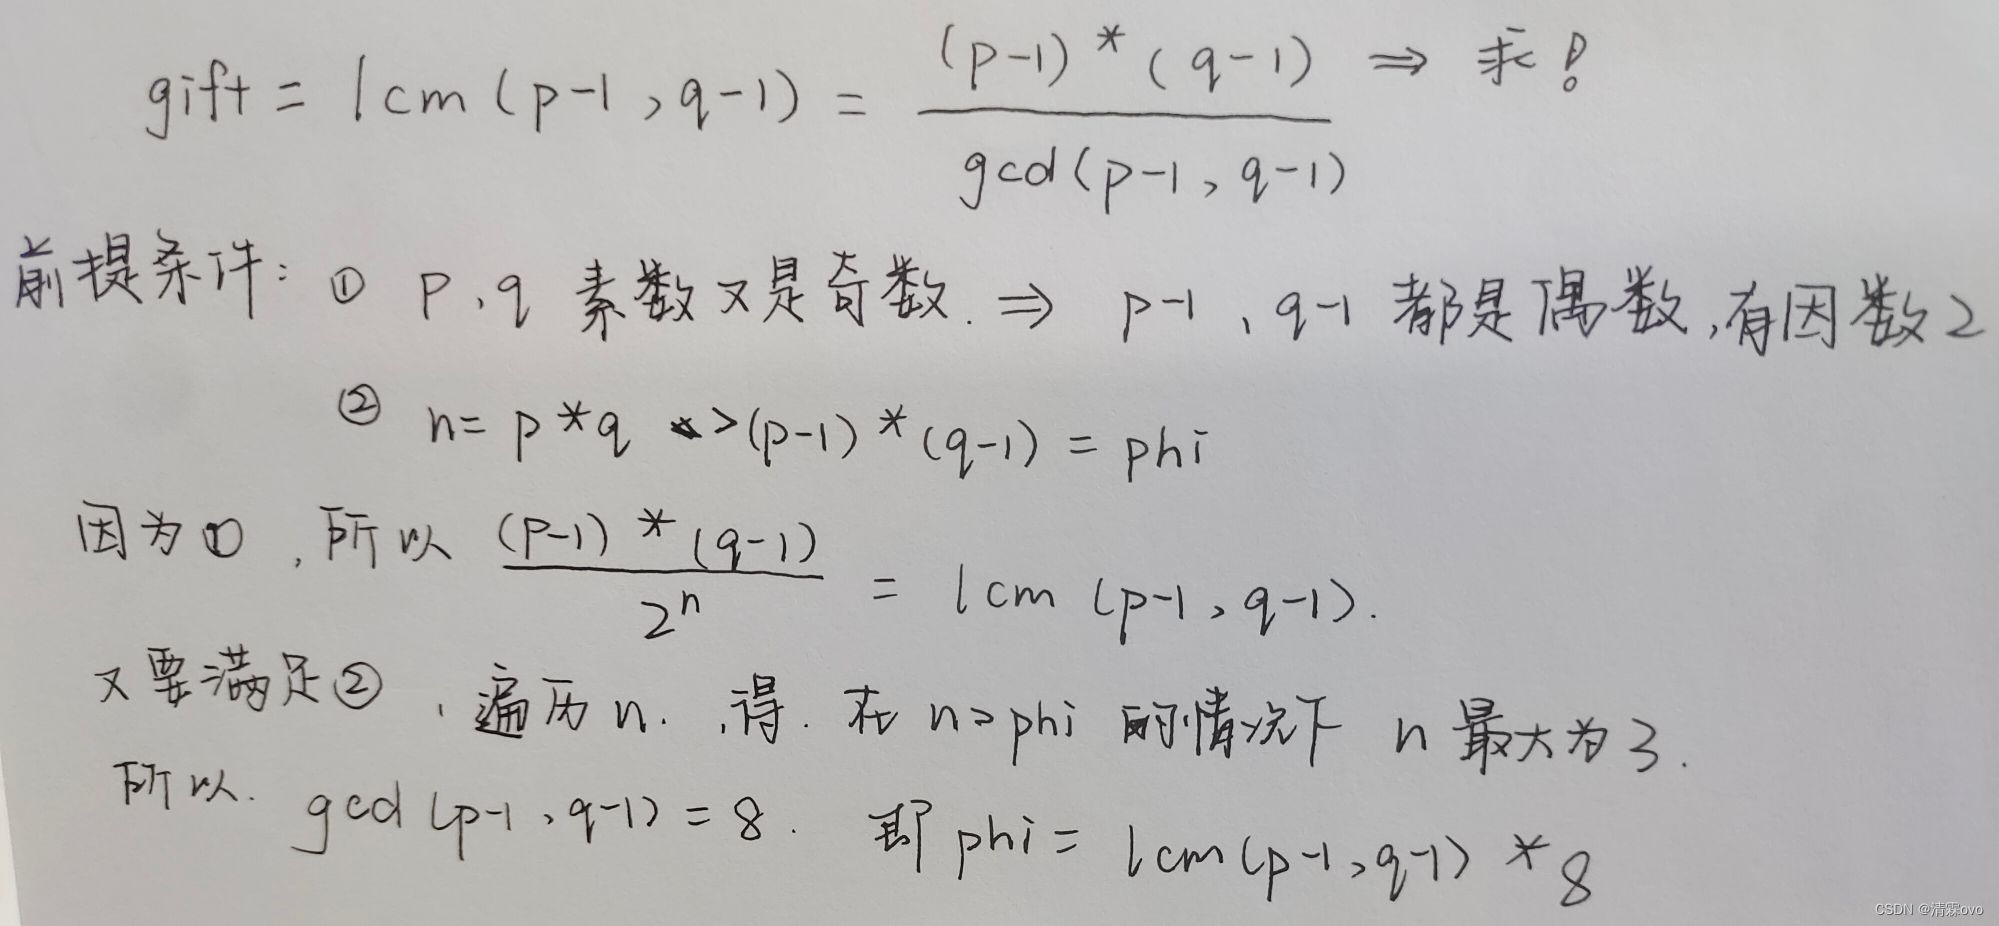 gift = lcm(p-1,q-1) = (p-1)*(q-1) / gcd(p-1,q-1) ⇒ 求!
前提条件: ① p、q 素数又是奇数. ⇒ p-1、q-1 都是偶数,有因数2
② n= p*q >(p-1)*(q-1) = phi
因为①,所以 (p-1)*(q-1) / 2^n = lcm(p-1,q-1).
又要满足②,遍历n.,得.在n>phi的情况下 n最大为3.
所以. gcd(p-1,q-1)=8. 即phi= lcm(p-1,q-1)*8
CSDN @清霂ovo